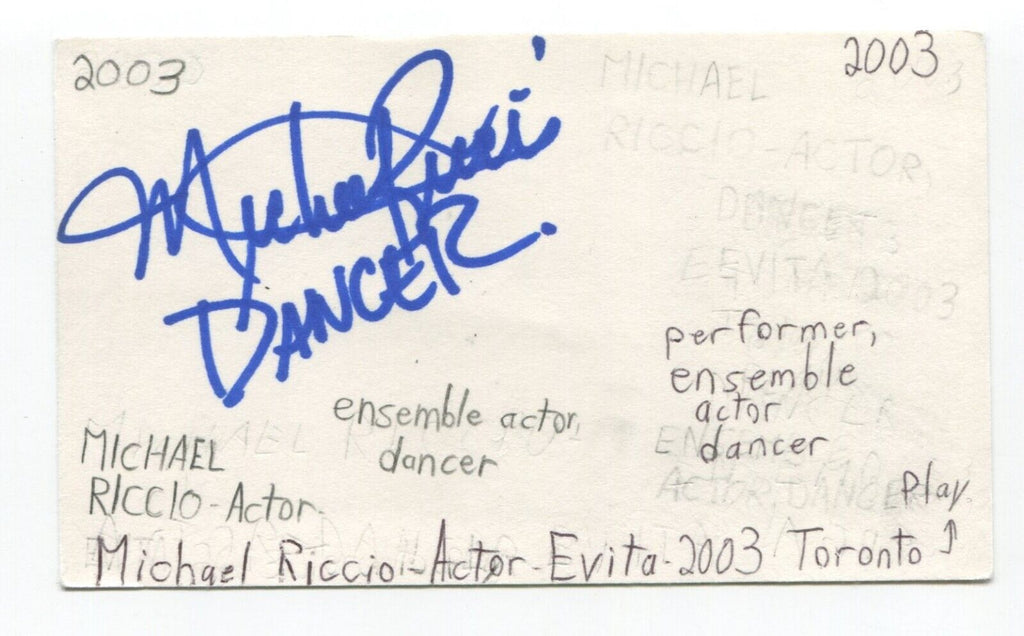 2003
2003
Michael Riccio
DANCER.
MICHAEL
RICCIO-ACTOR,
DANCER
EVITA 2003
performer,
ensemble
actor
dancer
ensemble actor,
dancer
MICHAEL
RICCIO-Actor-
Play
Michael Riccio-Actor-Evita-2003 Toronto ↑